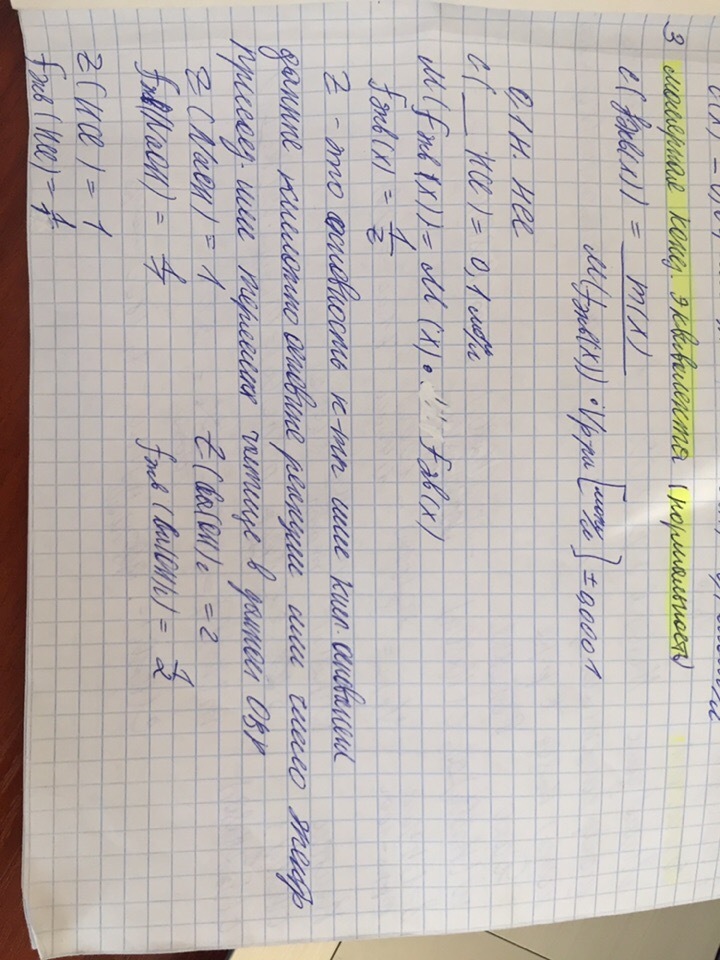 3 молярная конц. эквивалента (нормальность)
c(fэкв(x)) = m(x)
M(fэкв(x)) · Vр-ра [моль/л] ± 0,0001
0,1 н. HCl
c(__ HCl) = 0,1 моль
M(fэкв(x)) = M(x) · fэкв(x)
fэкв(x) = 1/z
z - это основность к-ты или кисл. основания
данное кислотно основные реакции или число электр
присоед. или теряемых частице в данной ОВР
z(NaOH) = 1 z(Ba(OH)2 = 2
fэкв(NaOH) = 1/1 fэкв(Ba(OH)2) = 1/2
z(HCl) = 1
fэкв(HCl) = 1/1